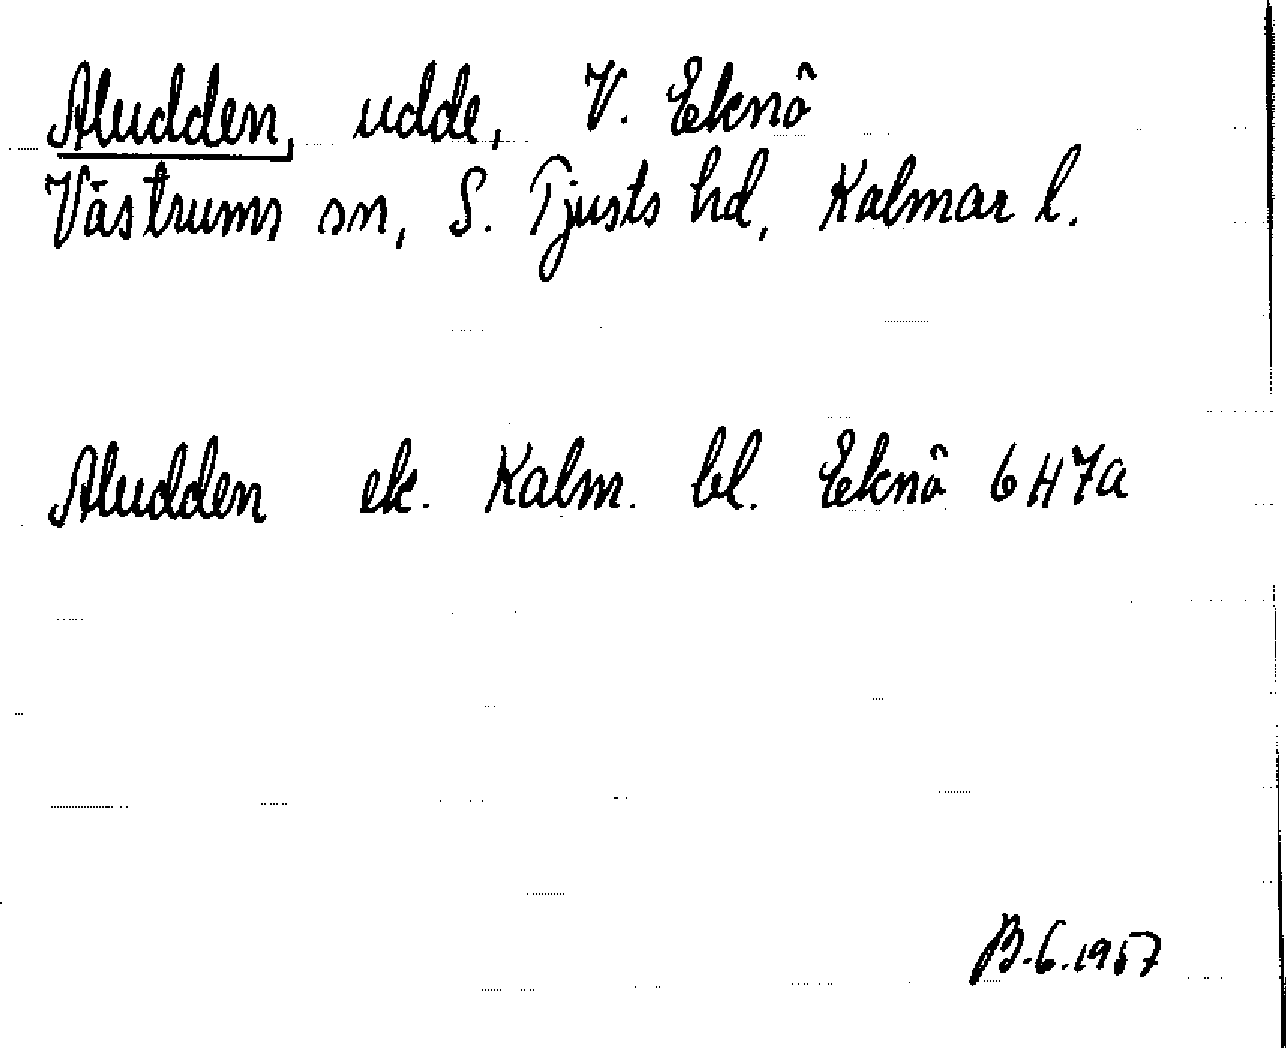 Aludden, udde, V. Eknö
Västrums sn, S. Tjusts hd, Kalmar l.
Aludden ek. Kalm. bl. Eknö 6H7a
B.G.1957